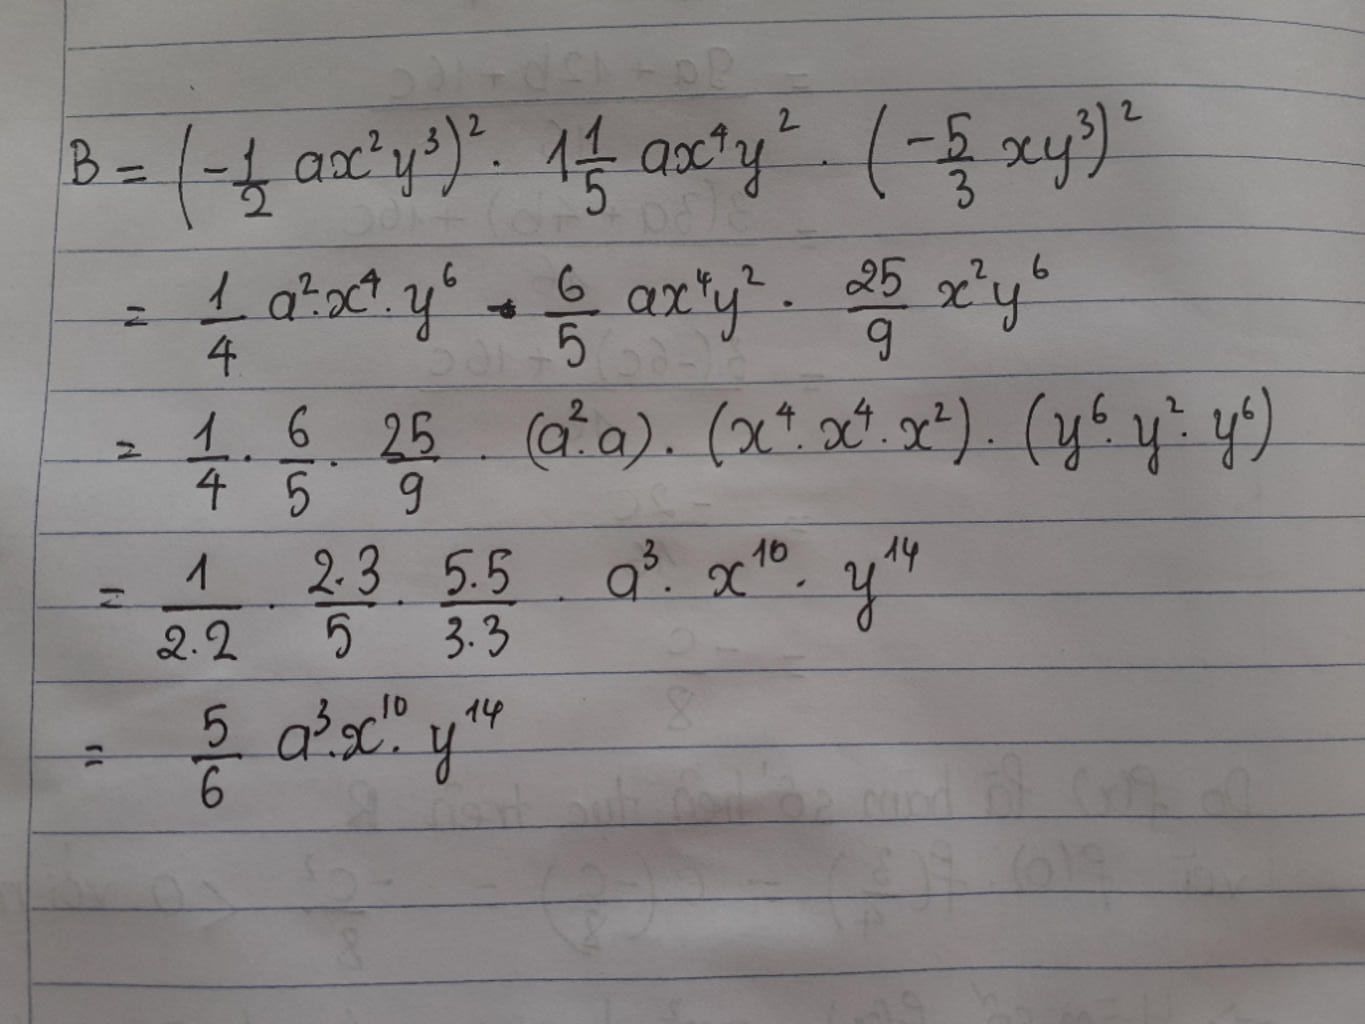 B = (-1/2 ax²y³)² . 1 1/5 ax⁴y² . (-5/3 xy³)²
= 1/4 a².x⁴.y⁶ . 6/5 ax⁴y² . 25/9 x²y⁶
= 1/4 . 6/5 . 25/9 . (a².a) . (x⁴.x⁴.x²) . (y⁶.y².y⁶)
= 1/2.2 . 2.3/5 . 5.5/3.3 . a³. x¹⁰. y¹⁴
= 5/6 a³.x¹⁰. y¹⁴